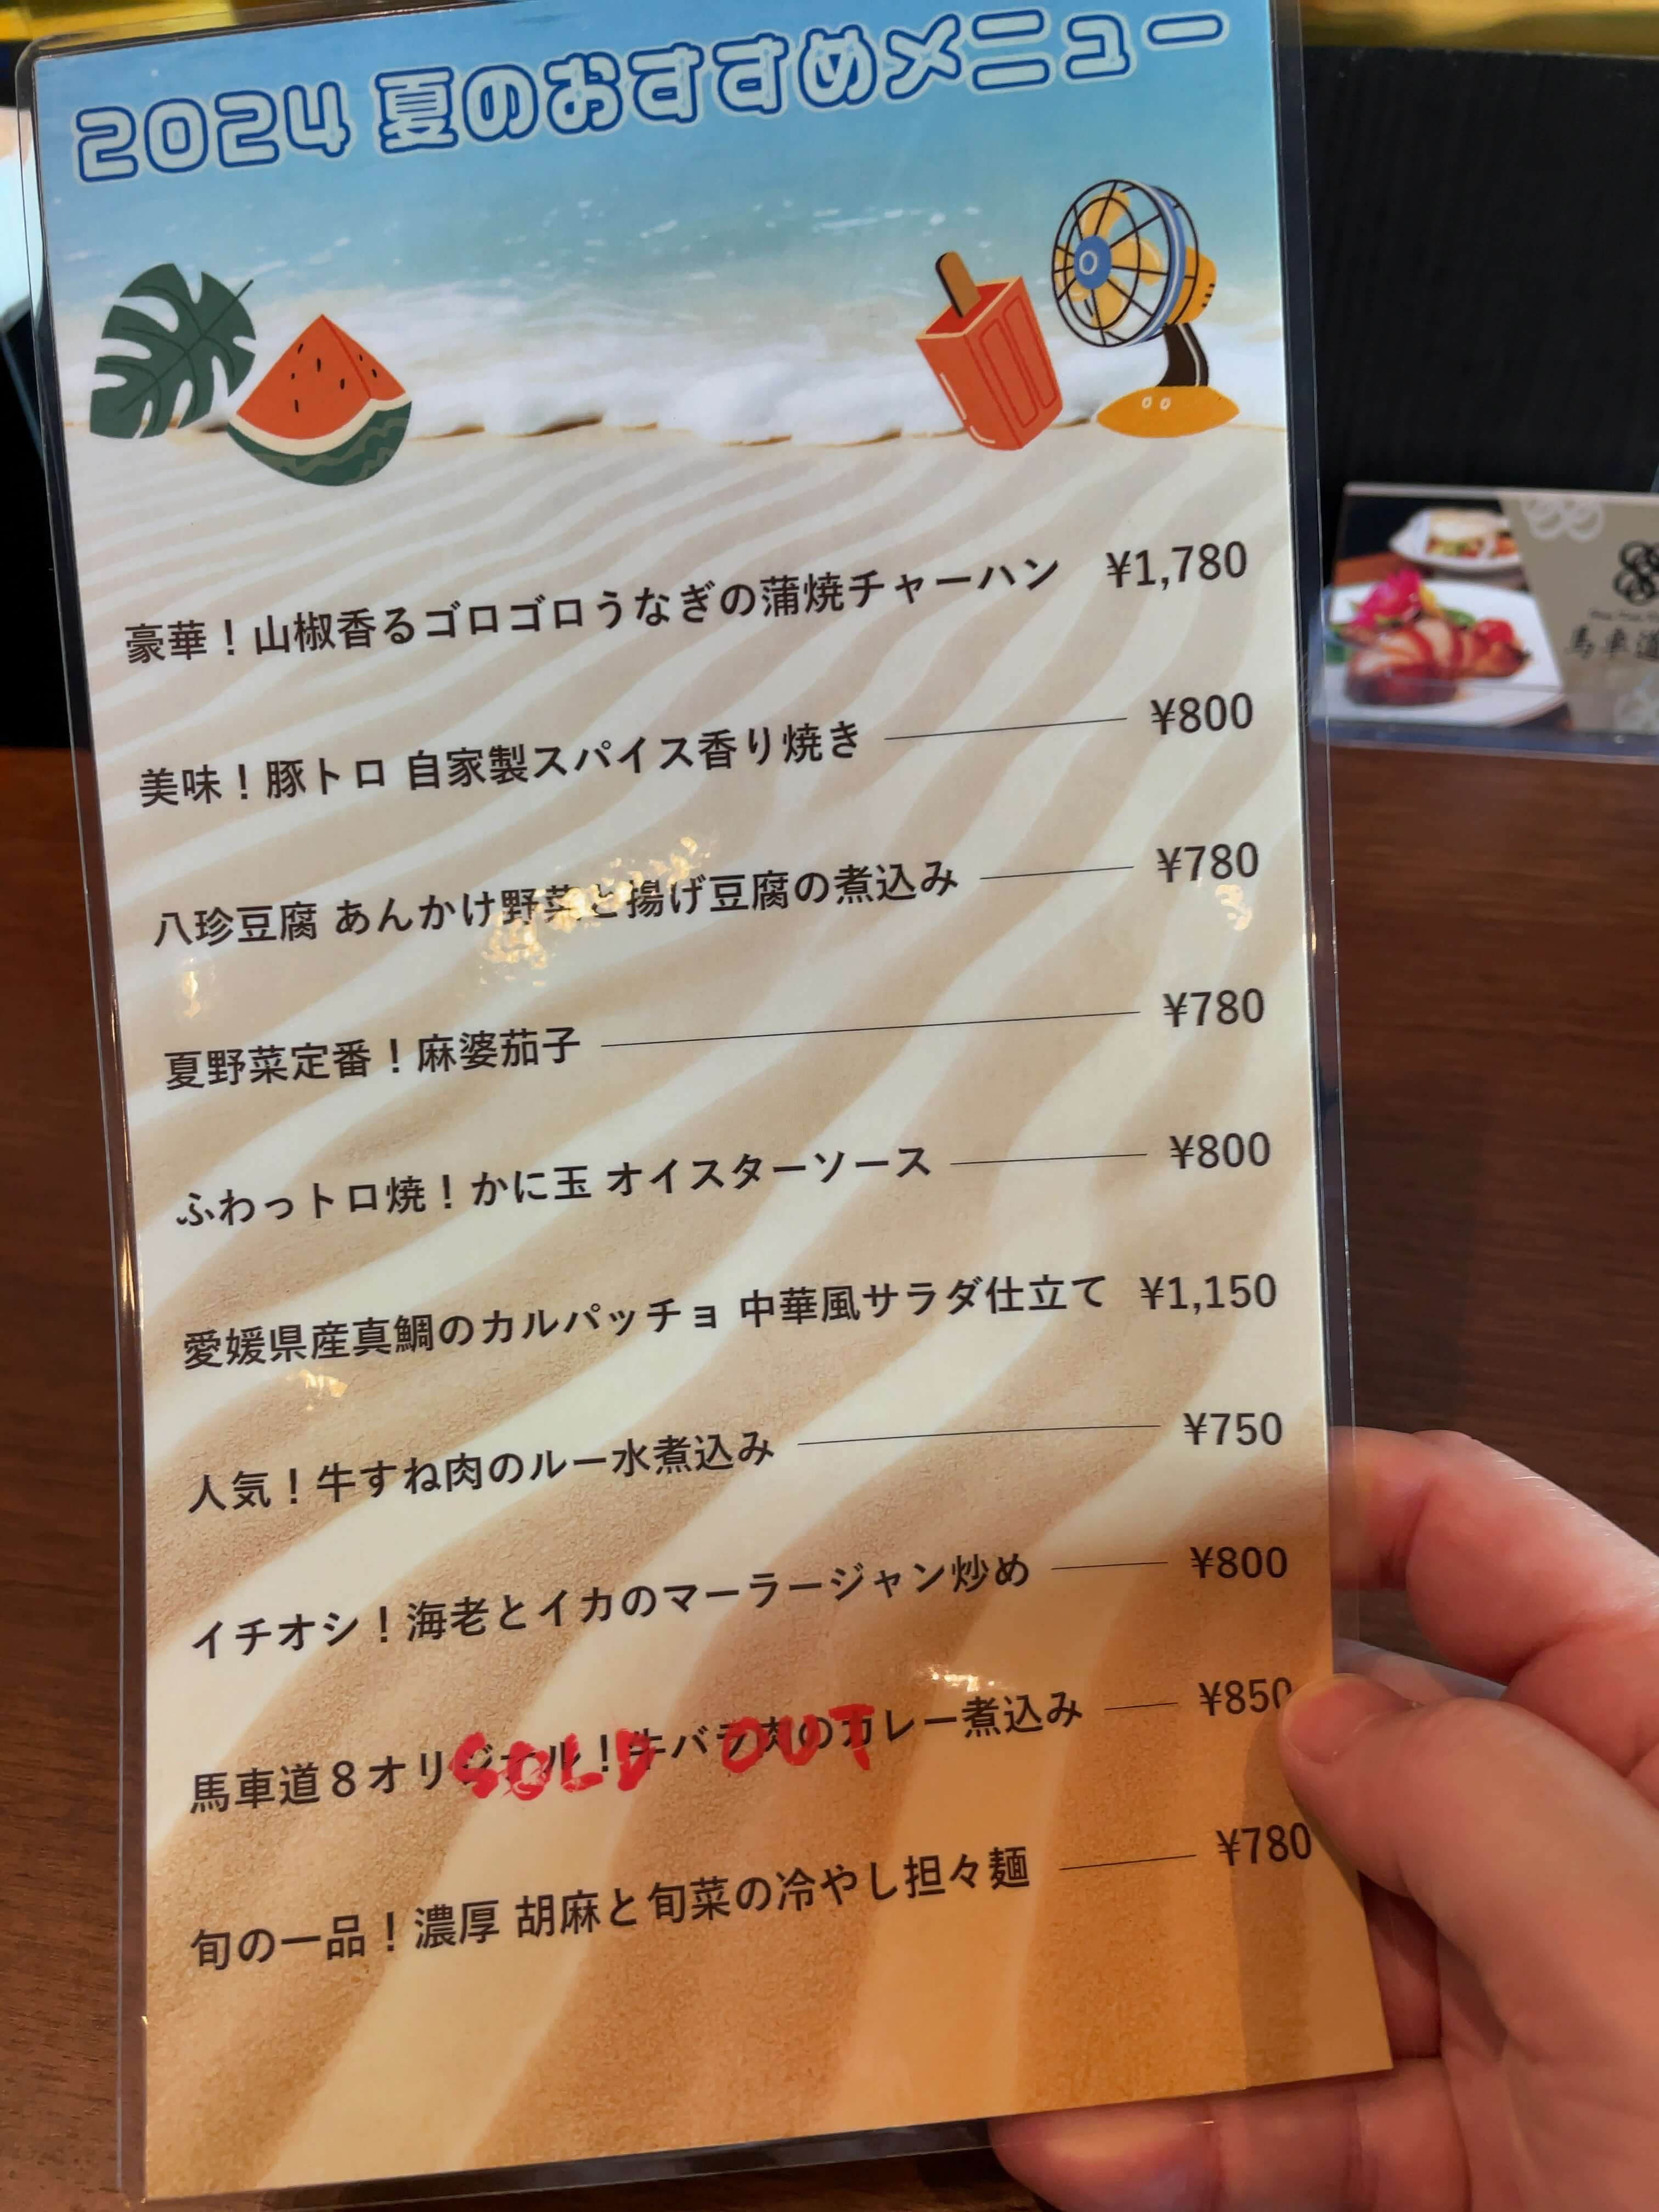 2024 夏のおすすめメニュー
豪華！山椒香るゴロゴロうなぎの蒲焼チャーハン ¥1,780
美味！豚トロ 自家製スパイス香り焼き ¥800
八珍豆腐 あんかけ野菜と揚げ豆腐の煮込み ¥780
夏野菜定番！麻婆茄子 ¥780
ふわっトロ焼！かに玉 オイスターソース ¥800
愛媛県産真鯛のカルパッチョ 中華風サラダ仕立て ¥1,150
人気！牛すね肉のルー水煮込み ¥750
イチオシ！海老とイカのマーラージャン炒め ¥800
馬車道8オリジナル！牛バラ肉のカレー煮込み ¥850
SOLD OUT
旬の一品！濃厚 胡麻と旬菜の冷やし担々麺 ¥780
馬車道